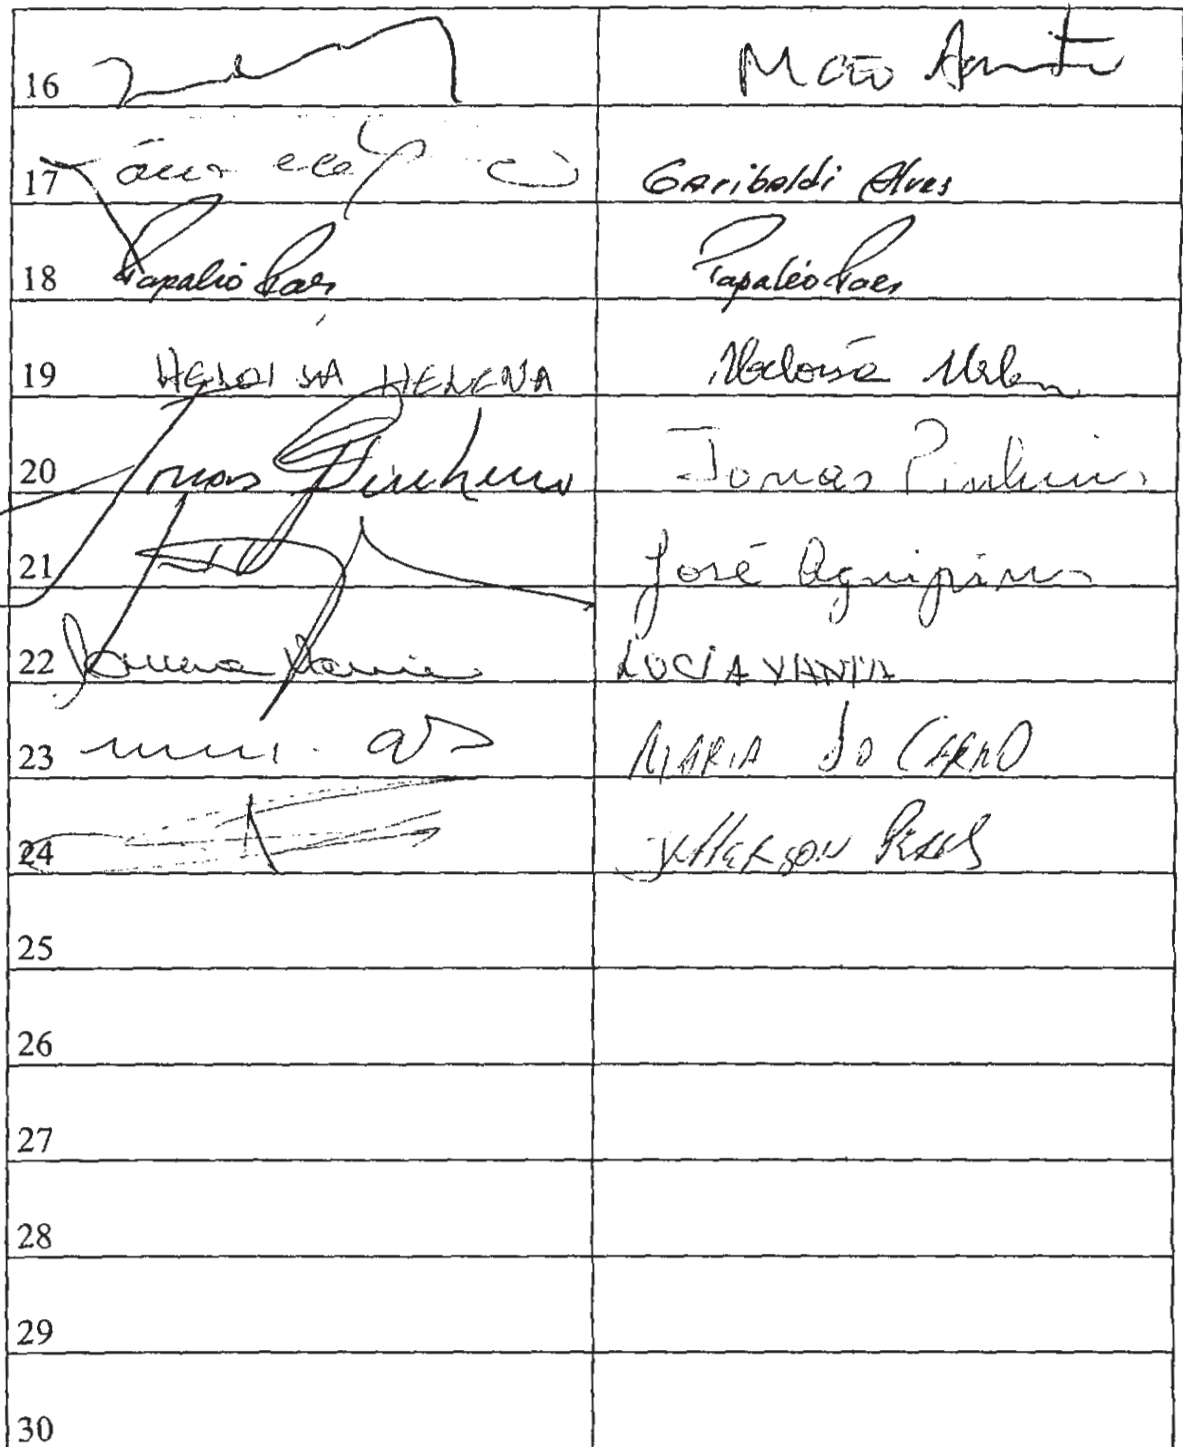 16
17 Garibaldi Alves
18 Papaléo Paes Papaléo Paes
19 HELOISA HELENA Heloisa Helena
20 Jonas Pinheiro Jonas Pinheiro
21 José Agripino
22 LUCIA VANIA
23 MARIA DO CARMO
24 JEFFERSON PERES
25
26
27
28
29
30